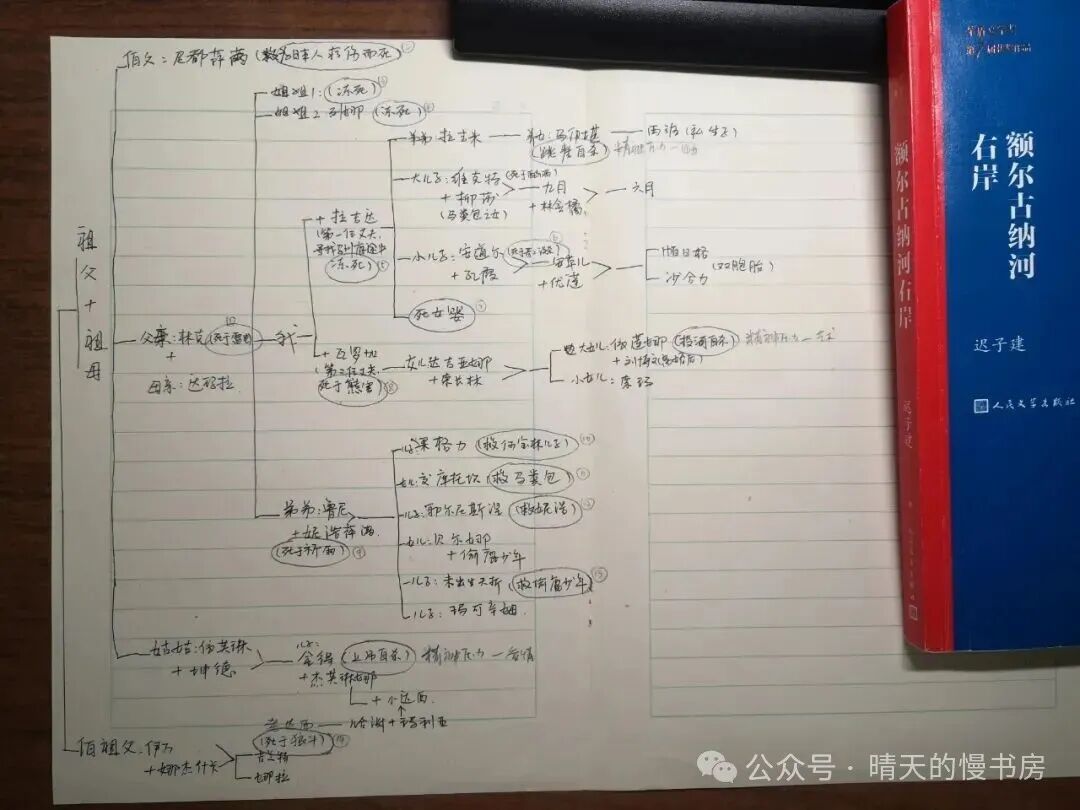 祖父+祖母
伯父:尼都萨满(救日本人 而死)
姐姐1:(冻死)
姐姐2 列娜(冻死)
弟弟 拉吉米
(跳 自杀)
西班(私生子)
大儿子:维克特(死于酗酒)
+柳莎
(马粪包之女)
九月
+林金橘
六月
+拉吉达
(第一任丈夫,
寻找 途中
冻死)
小儿子:安道尔
+瓦霞
安草儿
+优莲
帕日格
沙合力
(双胞胎)
死女婴
父亲:林克(死于雷)
+
母亲:达玛拉
我
+瓦罗加
(第二任丈夫,
死于熊害)
女儿达吉亚娜
+索长林
大女儿:依莲娜(投河自杀)
+刘博文(离婚后)
精神压力一艺术
小女儿:索玛
弟弟:鲁尼
+妮浩萨满
(死于祈雨)
儿子:果格力(救何宝林儿子)
女儿:交库托坎(救马粪包)
儿子:耶尔尼斯涅(救妮浩)
女儿:贝尔娜
+偷 少年
儿子:未出生夭折(救偷 少年)
儿子:玛克辛姆
姑姑:依芙琳
+坤德
儿子:
金得(上吊自杀)
精神压力一爱情
+杰芙琳娜
+小达西
老达西
(死于狼斗)
哈谢+玛利亚
伯祖父:伊万
+娜杰什卡
吉兰特
娜拉
茅盾文学奖
额尔古纳河
右岸
迟子建
人民文学出版社
额尔古纳河右岸
迟子建
人民文学出版社
公众号·晴天的慢书房